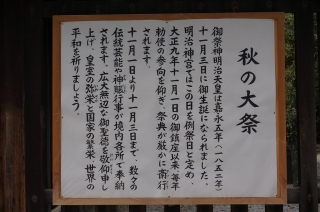 秋の大祭
御祭神明治天皇は嘉永五年(一八五二年)
十一月三日に御生誕になられました。
明治神宮ではこの日を例祭日と定め、
大正九年十一月一日の御鎮座以来、毎年
勅使の参向を仰ぎ、祭典が厳かに斎行
されます。
十一月一日より十一月三日まで、数々の
伝統芸能や神賑行事が境内各所で奉納
されます。広大無辺な御聖徳を敬仰申し
上げ、皇室の弥栄と国家の繁栄、世界の
平和を祈りましょう。